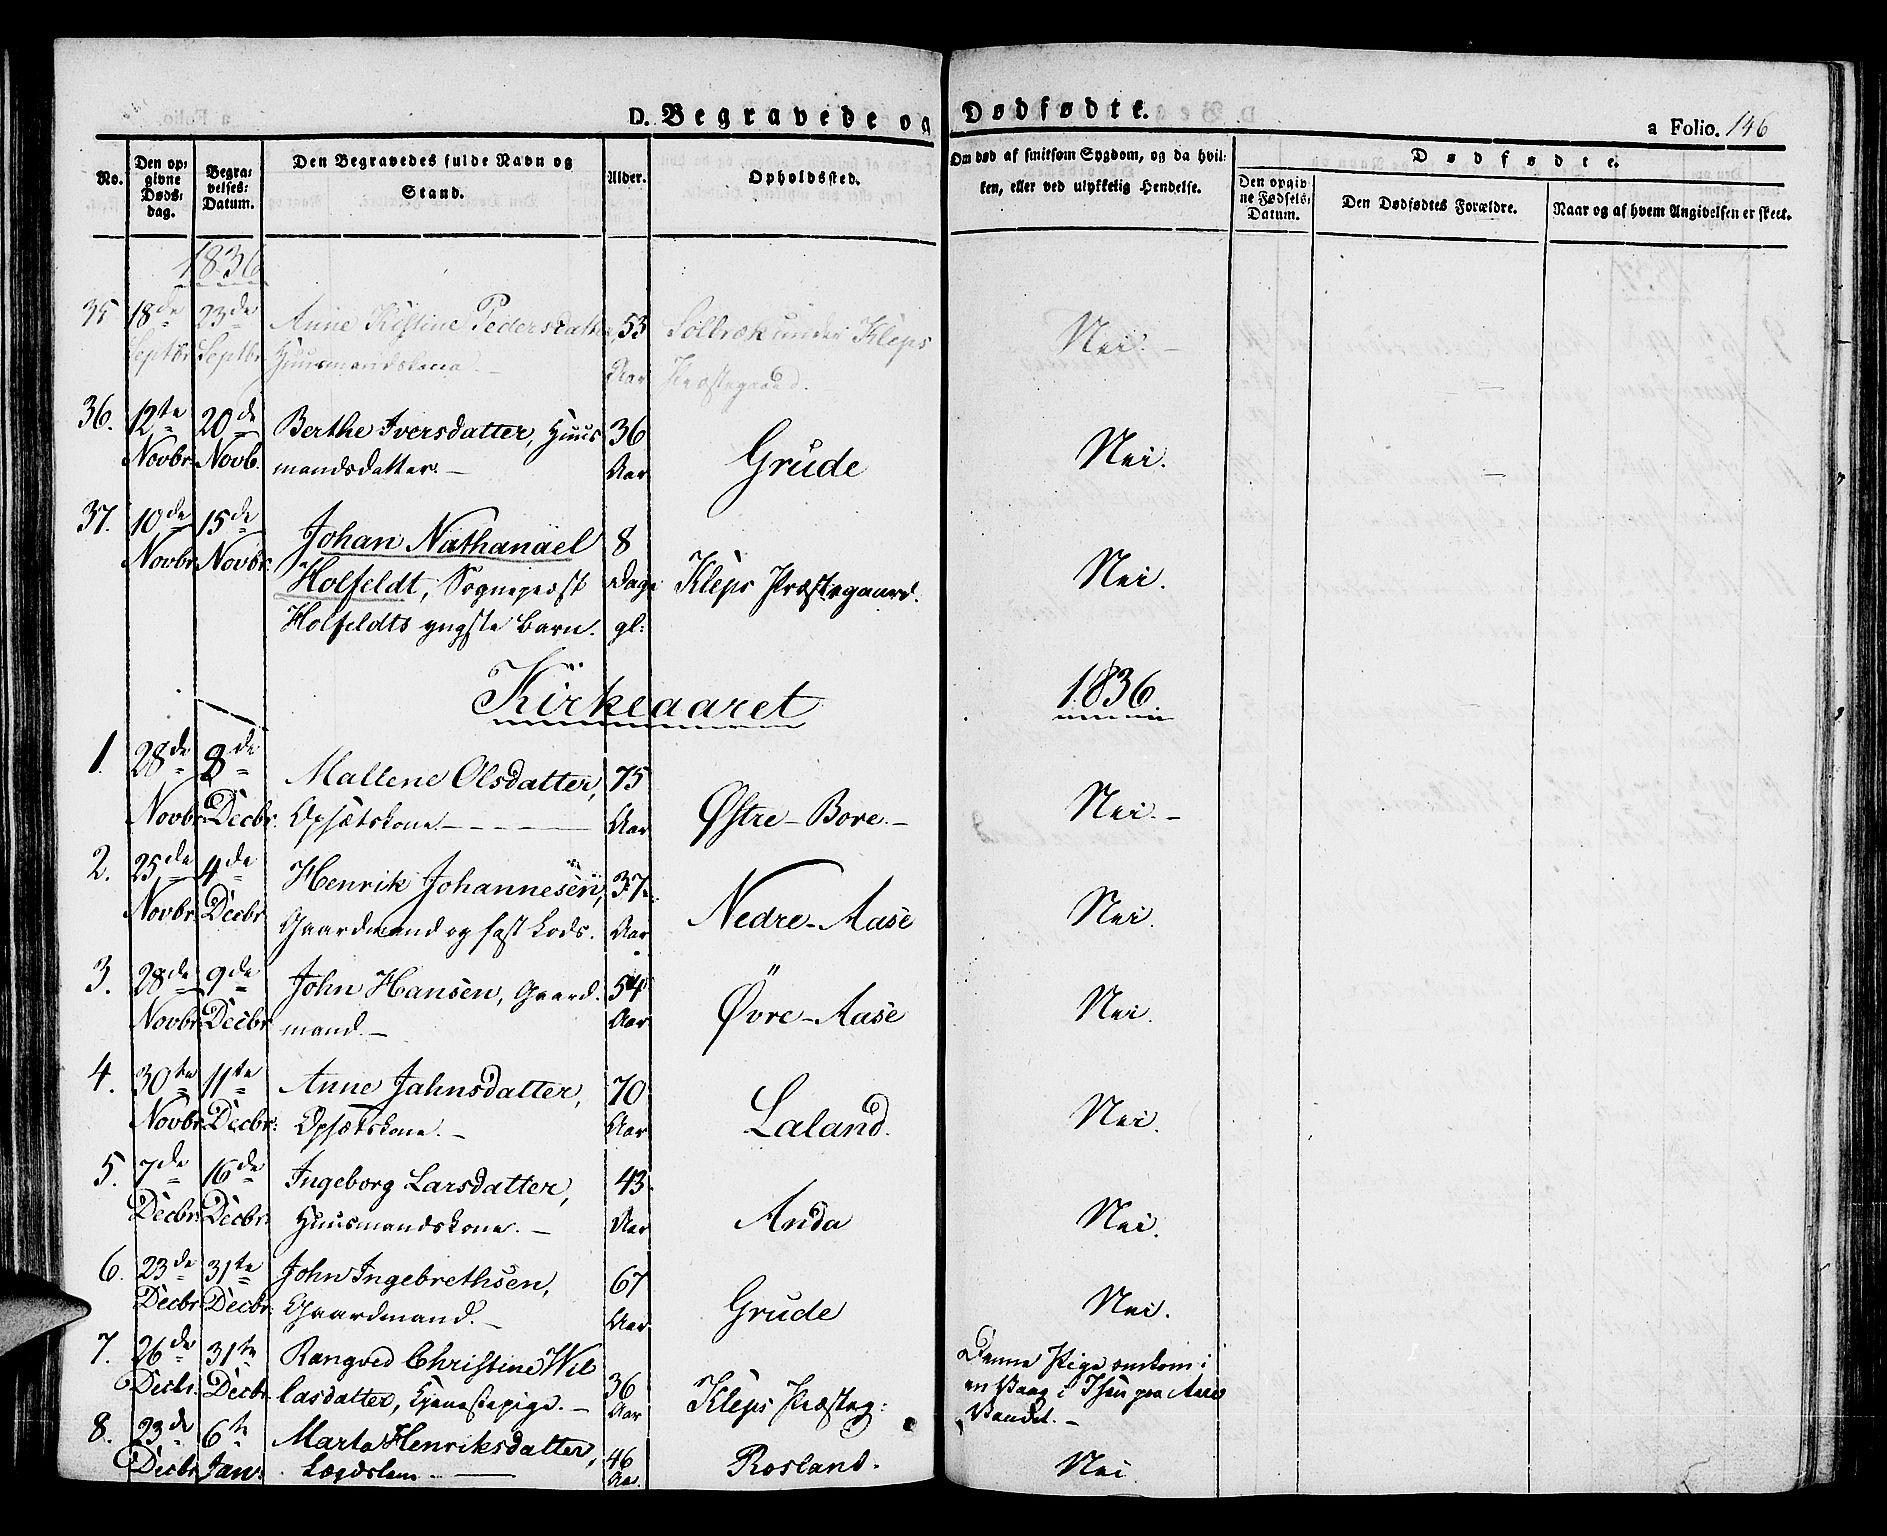 D. Begravede og Dødfødte. a Folio. 146
No. Den opgivne Dødsdag. Begravelses-Datum. Den Begravedes fulde Navn og Stand. Alder. Opholdssted. Om død af smitsom Sygdom, og da hvilken, eller ved ulykkelig Hendelse. Dødfødte.
Den opgivne Fødsels-Datum. Den Dødfødtes Forældre. Naar og af hvem Angivelsen er skeet.
1836
35 18de 23de Anne Kistine Pedersdatter 53 Solbræk under Kleps Nei.-
Septbr Septbr Huusmandskone.- Aar Præstegaard.
36. 12te 20de Berthe Iversdatter, Huus 36 Grude Nei.
Novbr Novb. mandsdatter.- Aar
37. 10de 15de Johan Nathanäel 8 Kleps Præstegaard. Nei.
Novbr Novbr. Holfeldt, Sogneprest Dage
Holfeldts yngste Barn. gl:
Kirkeaaret 1836.
1. 28de 8de Mallene Olsdatter, 75 Østre-Bore.- Nei.-
Novbr Decbr. Opsætskone.- Aar
2. 25de 4de Henrik Johannesen, 37 Nedre-Aase Nei.
Novbr Decbr Gaardmand og fast Lods. Aar
3. 28de 9de John Hansen, Gaard. 54 Övre-Aase Nei.
Novbr Decbr mand.- Aar
4. 30te 11te Anne Jahnsdatter, 70 Laland. Nei.
Novbr. Decbr: Opsætskone.- Aar
5. 7de 16de Ingeborg Larsdatter, 43. Anda Nei.
Decbr Decbr: Huusmandskone.- Aar
6. 23de 31te John Ingebrethsen, 67 Grude Nei.
Decbr Decbr. Gaardmand.- Aar.
7. 26de 31te Rangved Christine Wil 36 Kleps Præsteg: Denne Pige omkom i
Decbr. Decbr. lasdatter, Tjenestepige.- Aar en Vaag i Isen paa
Vandet.-
8. 23de 6te Marta Henriksdatter, 46 Rosland. Nei
Decbr Jan: Lægdslem.- Aar.